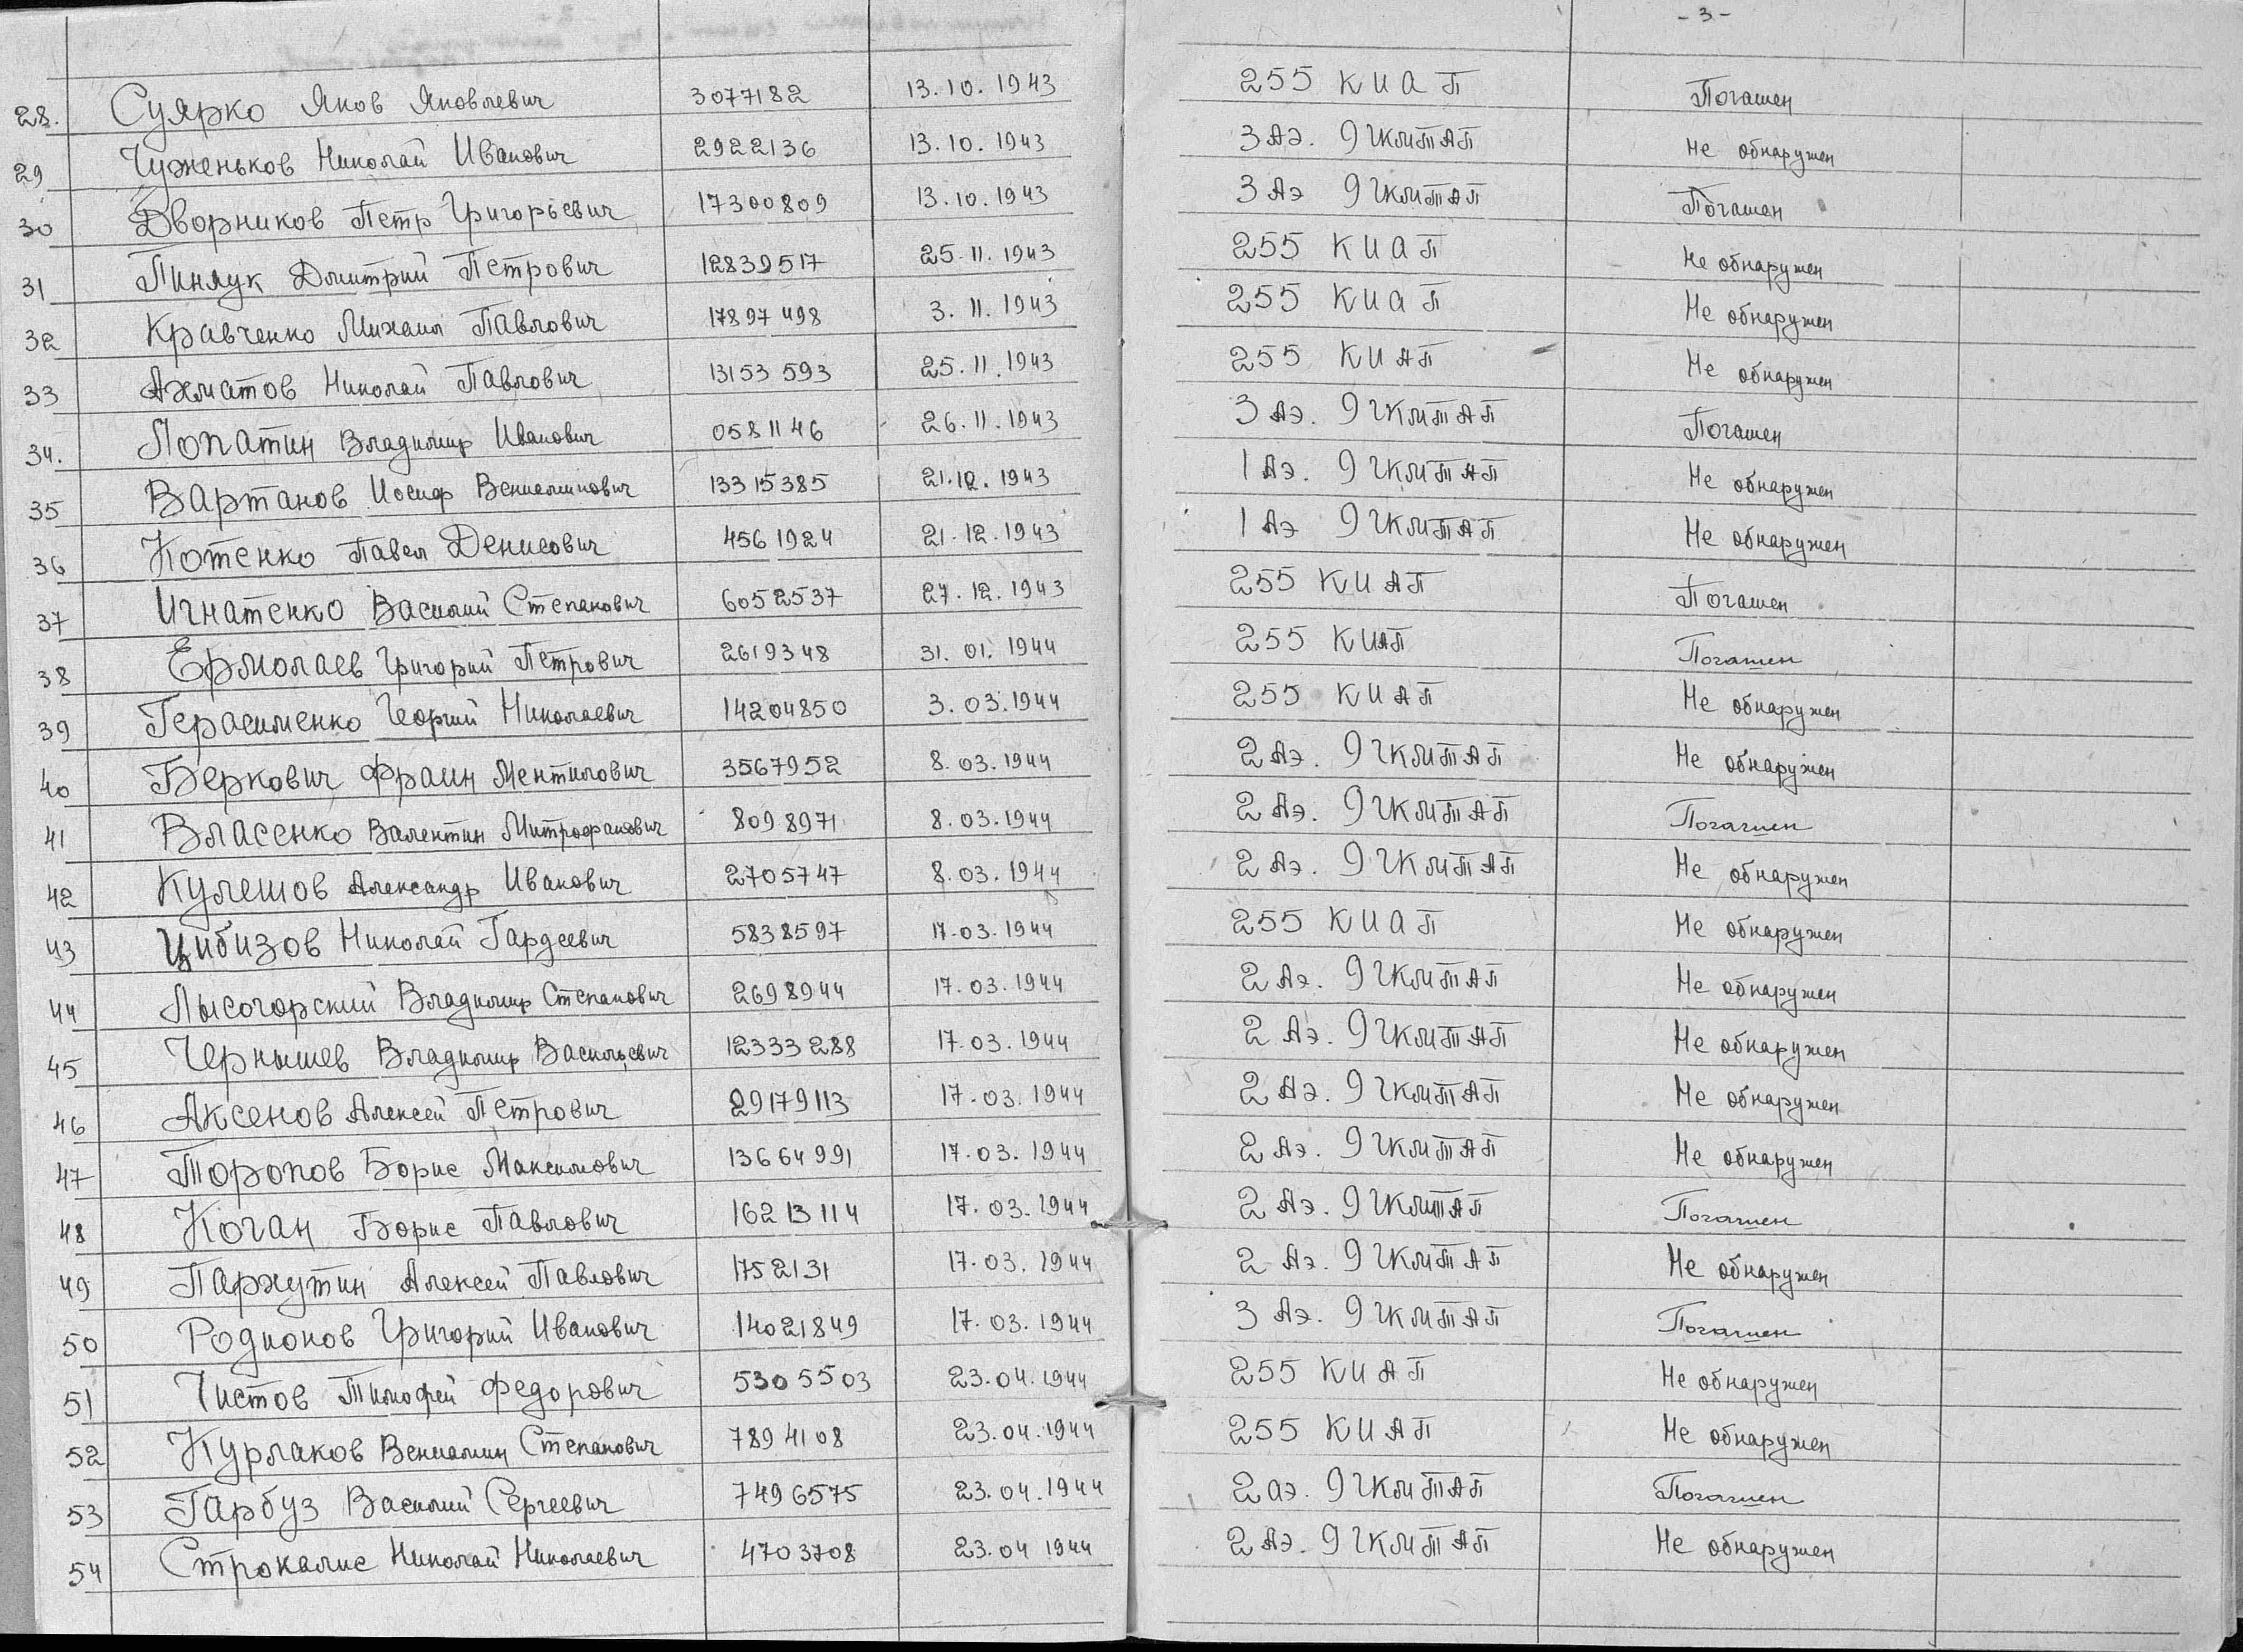 - 3 -
28. Суярко Яков Яковлевич 3077182 13.10.1943 255 КИАП Погашен
29 Чуженьков Николай Иванович 2922136 13.10.1943 3 АЭ. 9 ГКМТАП Не обнаружен
30 Дворников Петр Григорьевич 17300809 13.10.1943 3 АЭ 9 ГКМТАП Погашен
31 Пинчук Дмитрий Петрович 12839517 25.11.1943 255 КИАП Не обнаружен
32 Кравченко Михаил Павлович 17897498 3.11.1943 255 КИАП Не обнаружен
33 Ахматов Николай Павлович 13153593 25.11.1943 255 КИАП Не обнаружен
34. Лопатин Владимир Иванович 0581146 26.11.1943 3 АЭ. 9 ГКМТАП Погашен
35 Вартанов Иосиф Вениаминович 13315385 21.12.1943 1 АЭ. 9 ГКМТАП Не обнаружен
36 Котенко Павел Денисович 4561924 21.12.1943 1 АЭ 9 ГКМТАП Не обнаружен
37 Игнатенко Василий Степанович 6052537 27.12.1943 255 КИАП Погашен
38 Ермолаев Григорий Петрович 2619348 31.01.1944 255 КИАП Погашен
39 Герасименко Георгий Николаевич 14204850 3.03.1944 255 КИАП Не обнаружен
40 Беркович Фраин Ментилович 3567952 8.03.1944 2 АЭ. 9 ГКМТАП Не обнаружен
41 Власенко Валентин Митрофанович 8098971 8.03.1944 2 АЭ. 9 ГКМТАП Погашен
42 Кулешов Александр Иванович 2705747 8.03.1944 2 АЭ. 9 ГКМТАП Не обнаружен
43 Цибизов Николай Гардеевич 5838597 17.03.1944 255 КИАП Не обнаружен
44 Лысогорский Владимир Степанович 2698944 17.03.1944 2 АЭ. 9 ГКМТАП Не обнаружен
45 Чернышев Владимир Васильевич 12333288 17.03.1944 2 АЭ. 9 ГКМТАП Не обнаружен
46 Аксенов Алексей Петрович 29179113 17.03.1944 2 АЭ. 9 ГКМТАП Не обнаружен
47 Торопов Борис Максимович 13664991 17.03.1944 2 АЭ. 9 ГКМТАП Не обнаружен
48 Коган Борис Павлович 16213114 17.03.1944 2 АЭ. 9 ГКМТАП Погашен
49 Пархутин Алексей Павлович 1752131 17.03.1944 2 АЭ. 9 ГКМТАП Не обнаружен
50 Родионов Григорий Иванович 14021849 17.03.1944 3 АЭ. 9 ГКМТАП Погашен
51 Чистов Тимофей Федорович 5305503 23.04.1944 255 КИАП Не обнаружен
52 Курлаков Вениамин Степанович 7894108 23.04.1944 255 КИАП Не обнаружен
53 Гарбуз Василий Сергеевич 7496575 23.04.1944 2 аэ. 9 ГКМТАП Погашен
54 Строкалис Николай Николаевич 4703708 23.04 1944 2 АЭ. 9 ГКМТАП Не обнаружен